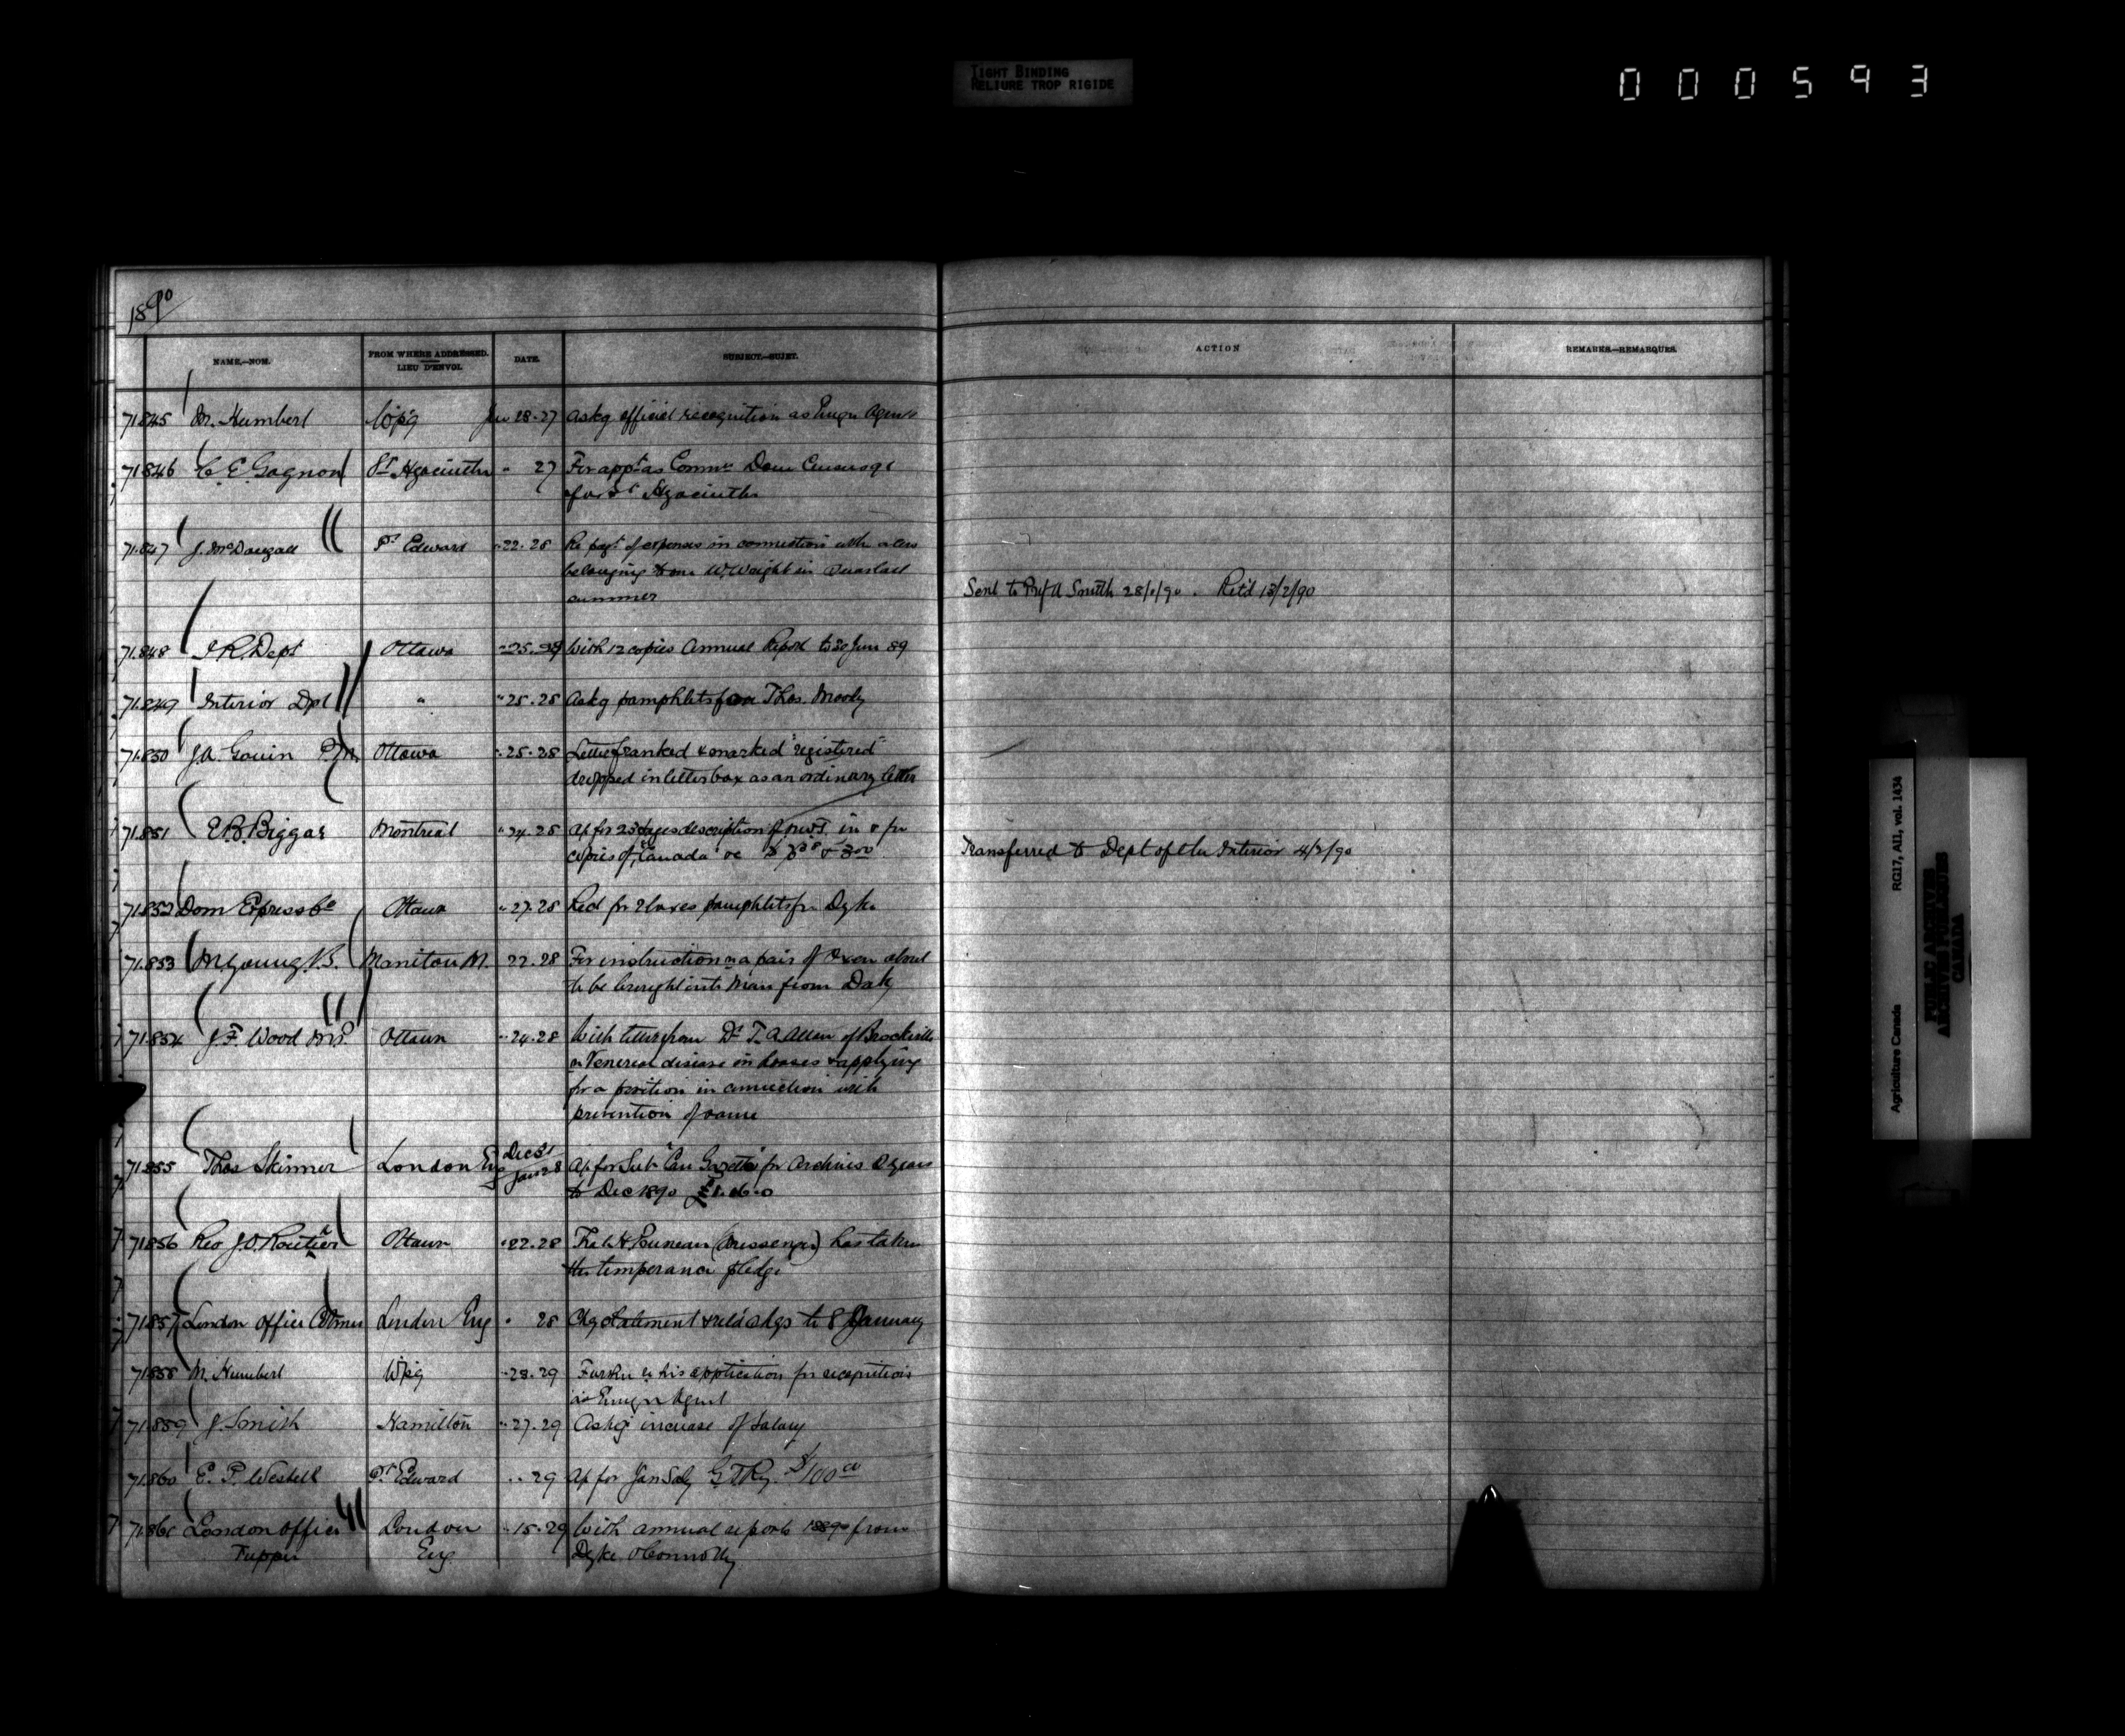 TIGHT BINDING
RELIURE TROP RIGIDE
000593
1890
NAME.—NOM.
FROM WHERE ADDRESSED.
LIEU D'ENVOI.
DATE.
SUBJECT.—SUJET.
ACTION
REMARKS.—REMARQUES.
71.845 M. Humbert Wpg Jan 28.27 Askg official recognition as Emign Agent
71.846 C. E. Gagnon St Hyacinthe " 27 For appt as Commr Dom Census 91
for St Hyacinthe
71.847 J. McDougall Pt Edward "22.28 Re payt of expenses in connection with
belonging to one W. Wright in last
summer
Sent to Prof A Smith 28/1/90. Retd 13/2/90
71.848 I R. Dept Ottawa "25. With 12 copies Annual Report to 30 Jun 89
71.849 Interior Dpt " "25.28 Askg pamphlets for Thos. Moody
71.850 J.A. Gouin P.M. Ottawa "25.28 Letter franked & marked "registered"
dropped in letter box as an ordinary letter
71.851 E.B. Biggar Montreal "24.28 Ap for 25 pages description of N.W.T. in & for
copies of "Canada"
Transferred to Dept of the Interior 4/2/90
71.852 Dom Express Co Ottawa "27.28 Recd for 2 boxes pamphlets fr Dyke
71.853 M. Young V.S. Manitou M. 22.28 For instruction re a pair of Oxen about
to be brought into Man from Dak
71.854 J.F. Wood M.P. Ottawa "24.28 With letter from Dr T. A. Allen of Brockville
on Venereal disease in horses & applying
for a position in connection with
prevention of same
71.855 Thos Skinner London Eng Dec 31
Jan 28 Ap for Sub "Can Gazette" for Archives 2 years
to Dec 1890 £1.16.0
71.856 Rev J.O. Routier Ottawa "22.28 That H (Messenger) has taken
the temperance pledge
71.857 London Office Colmer London Eng " 28 statement to 8 January
71.858 M. Humbert Wpg "28.29 Further re his application for recognition
as Emign Agent
71.859 J. Smith Hamilton "27.29 Askg increase of Salary
71.860 E. P. Westell Pt Edward " 29 Ap for Jan Saly G.T.Ry. $100 00
71.861 London Office London "15.29 With annual reports from
Tupper Eng Dyke & Connolly
Agriculture Canada RG17, AII, vol. 1434
PUBLIC ARCHIVES
ARCHIVES PUBLIQUES
CANADA